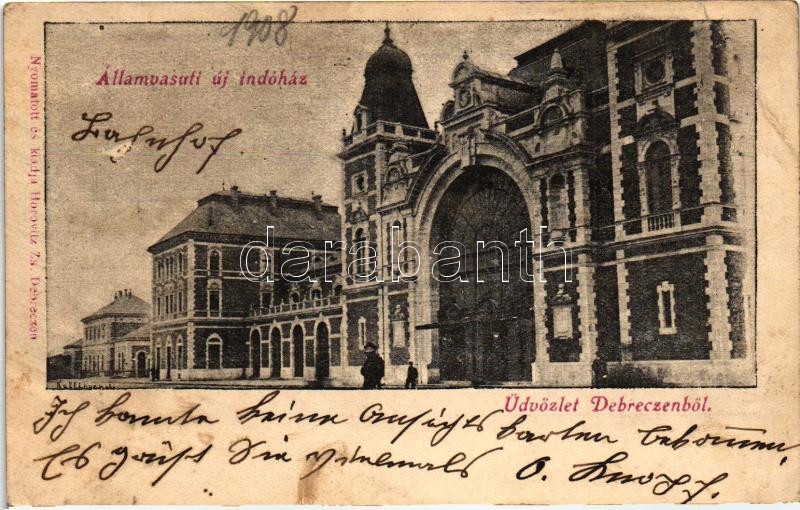 1908
Államvasuti új indóház
Bahnhof
Nyomatott és kiadja Horovitz Zs. Debreczen
darabanth.com
Üdvözlet Debreczenböl.
Ich konnte keine Ansichts karten bekommen,
Es grüßt Sie vielmals O. Knopf.